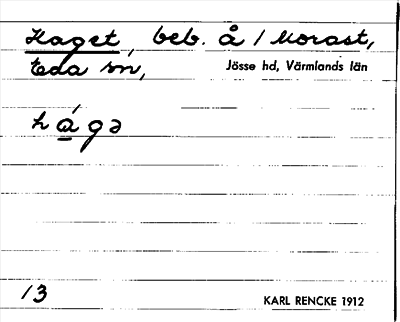 Haget, beb. å / Morast,
Eda sn,
Jösse hd, Värmlands län
hágə
13
KARL RENCKE 1912